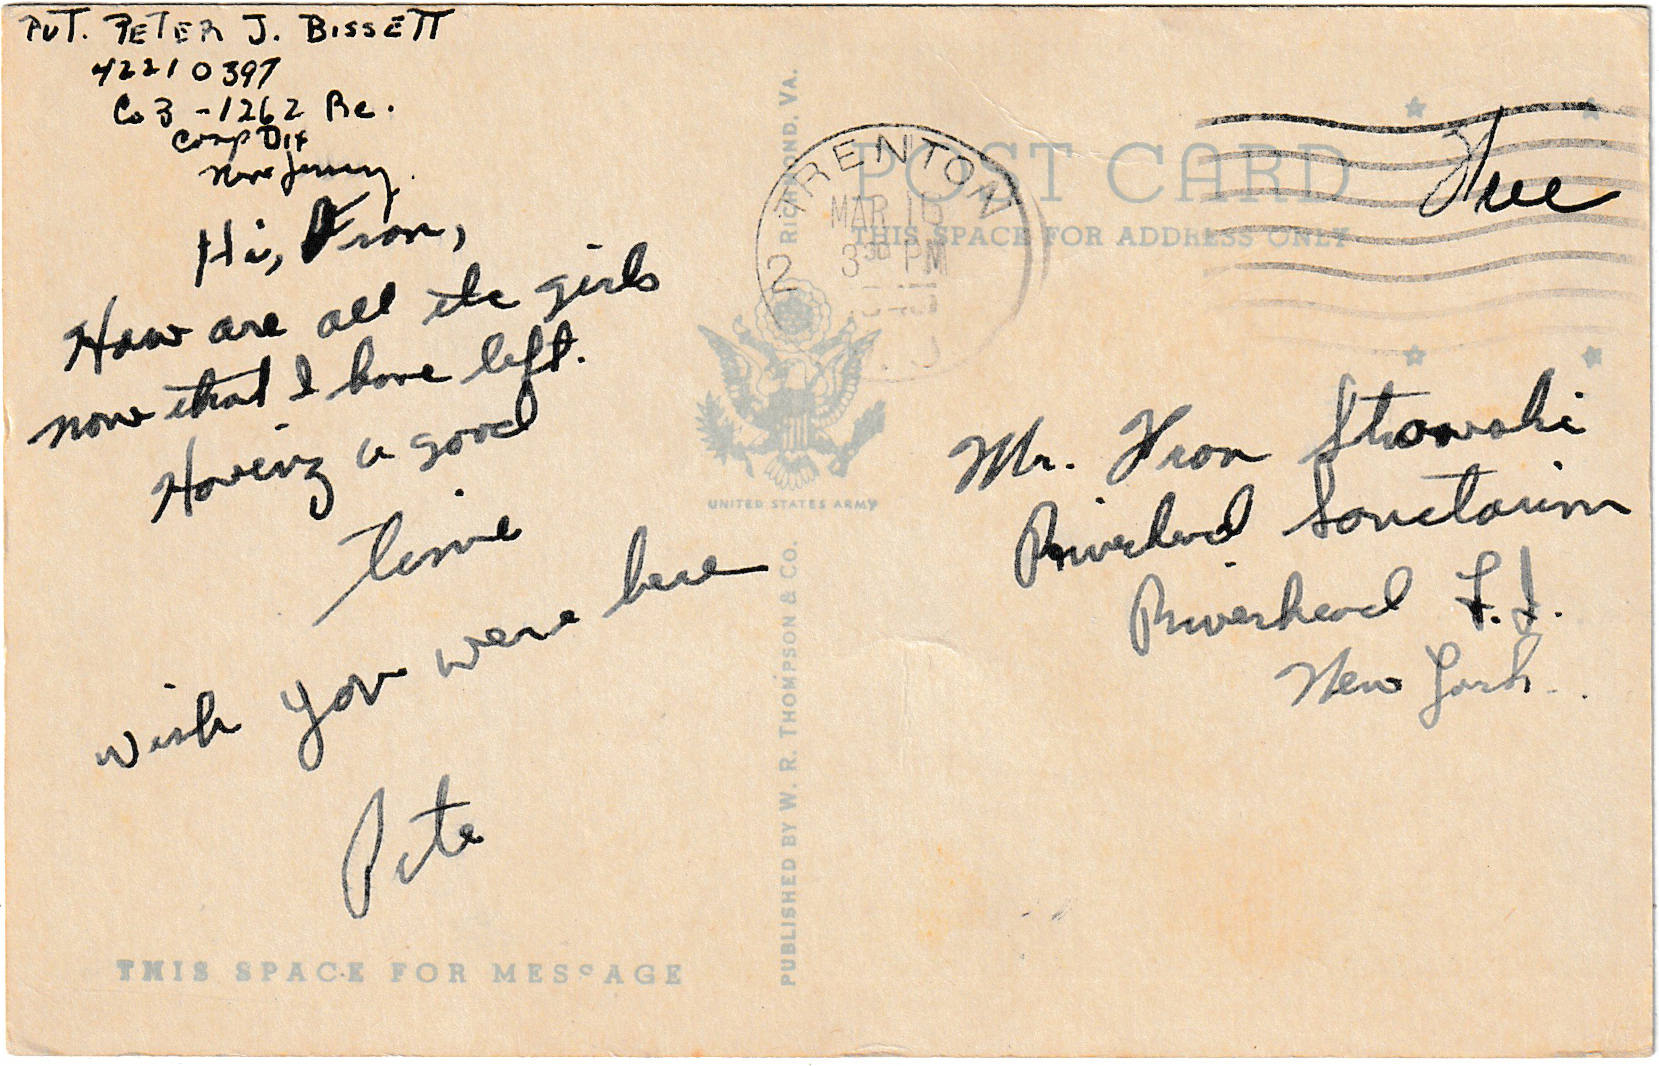 PVT. PETER J. BISSETT
42210397
Co 3 - 1262 Re.
Camp Dix
New Jersey.
Hi, Fran,
How are all the girls
now that I have left.
Having a good
time
wish you were here
Pete
THIS SPACE FOR MESSAGE
PUBLISHED BY W. R. THOMPSON & CO. RICHMOND, VA.
UNITED STATES ARMY
TRENTON 2
MAR 16
3 30 PM
N.J.
POST CARD
THIS SPACE FOR ADDRESS ONLY
Free
Mr. Fran
Riverhead Sanctarium
Riverhead L.I.
New York.